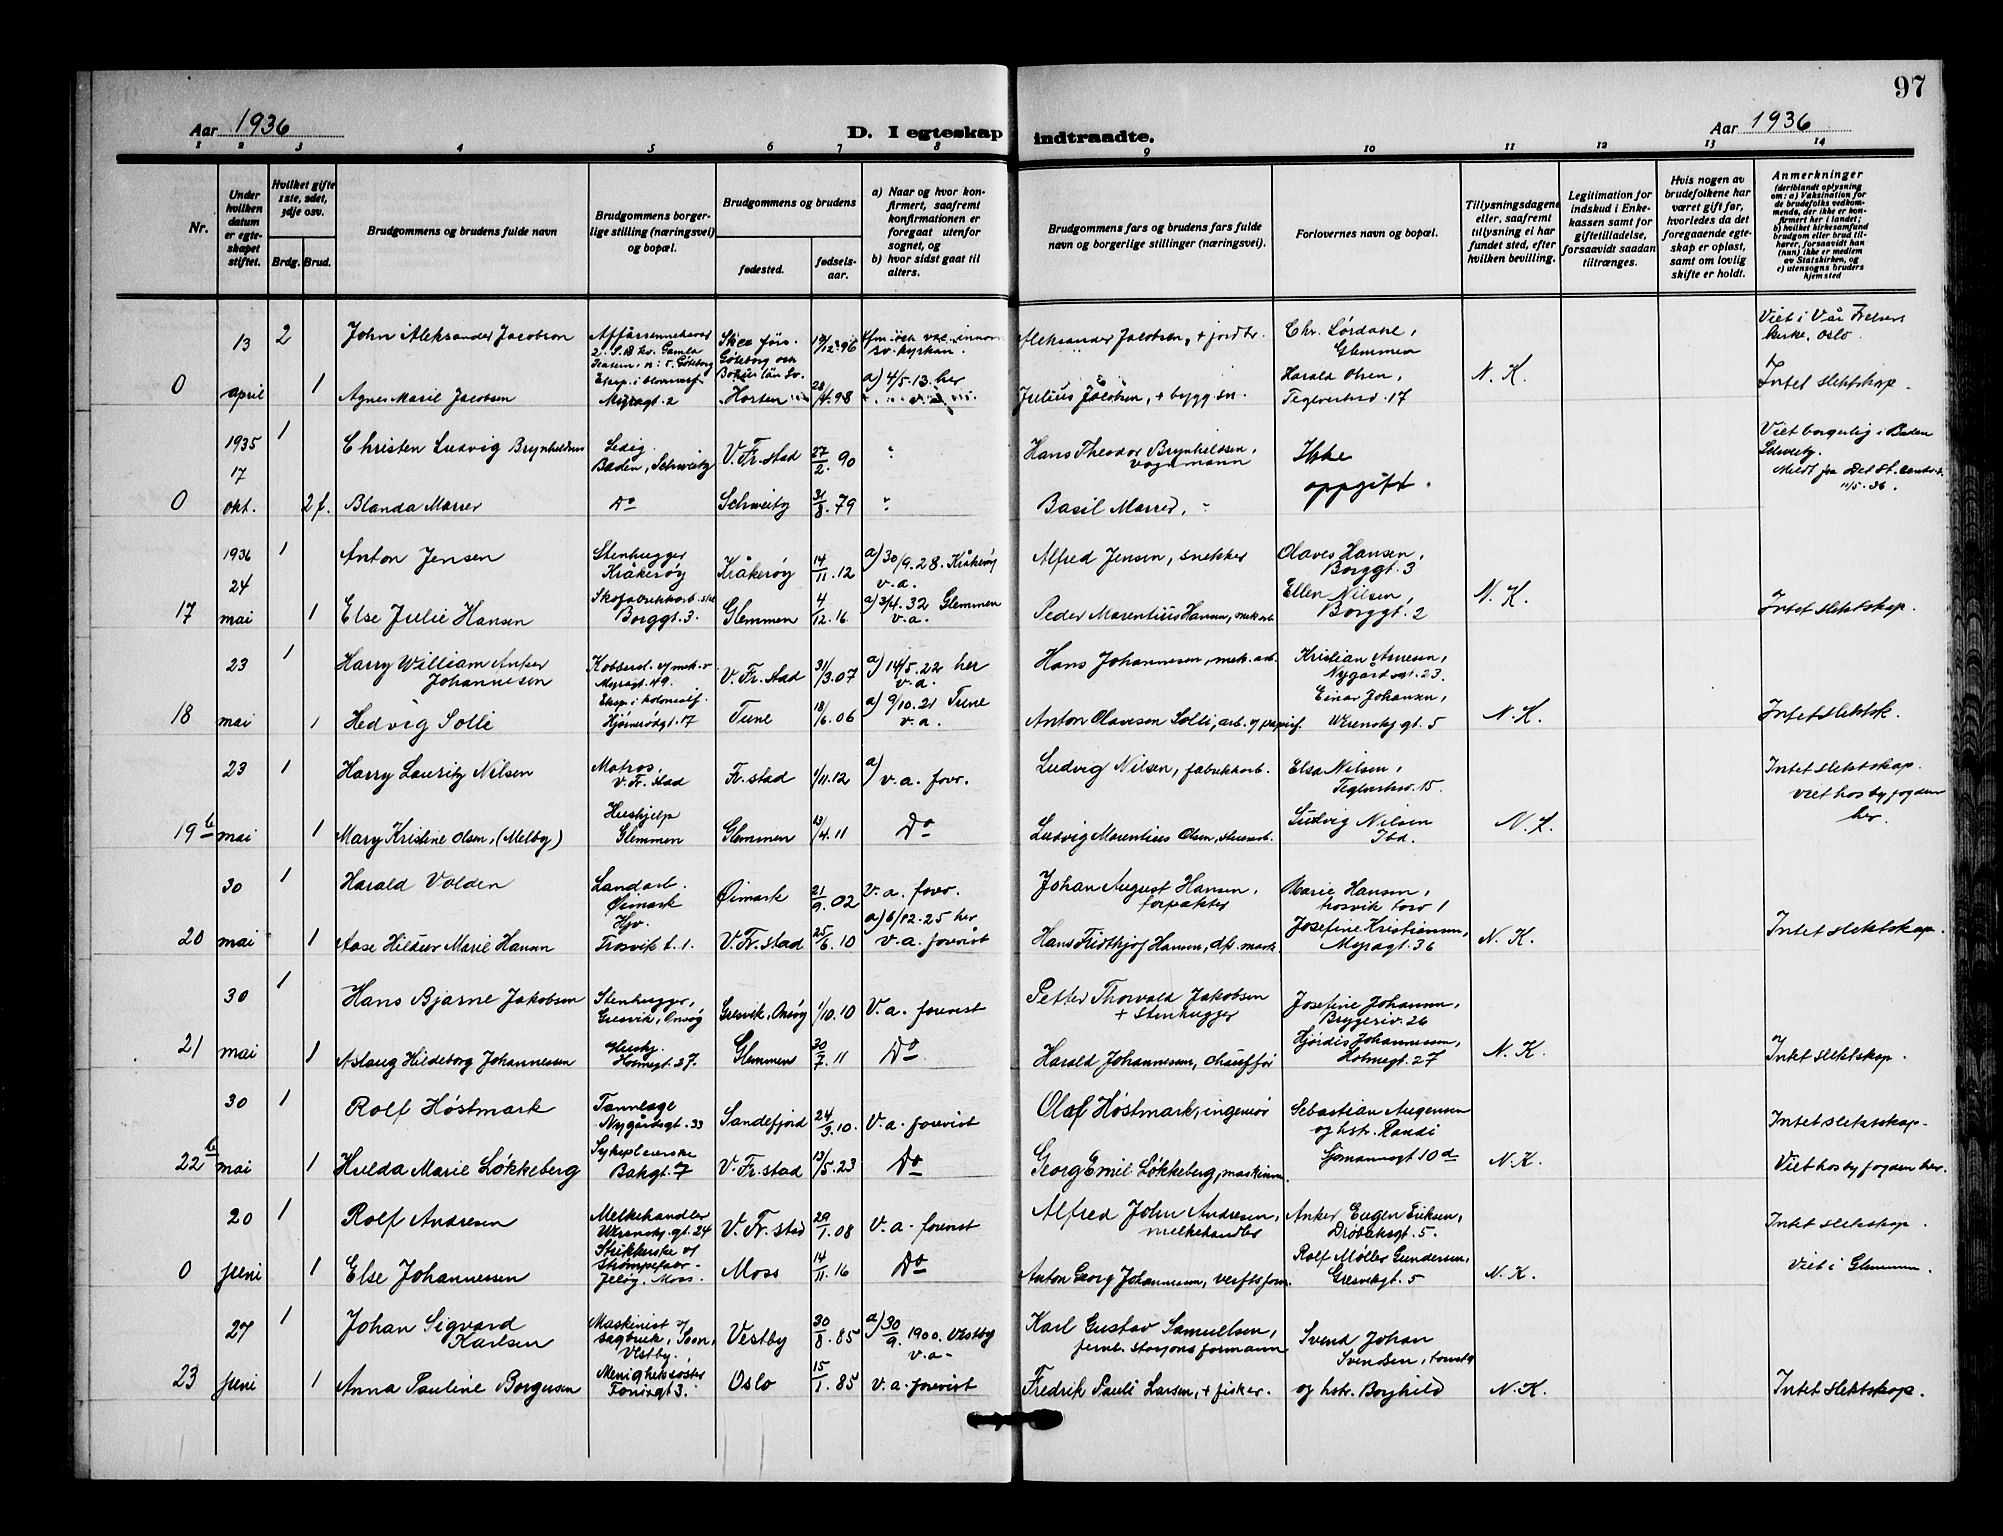 97
Aar 1936
D. I egteskap indtraadte.
Aar 1936
1 2 3 4 5 6 7 8 9 10 11 12 13 14
Nr.
Under hvilken datum er egteskapet stiftet.
Hvilket gifte 1ste, 2det, 3dje osv.
Brdg. Brud.
Brudgommens og brudens fulde navn
Brudgommens borgerlige stilling (næringsvei) og bopæl.
Brudgommens og brudens
fødested.
fødselsaar.
a) Naar og hvor konfirmert, saafremt konfirmationen er foregaat utenfor sognet, og
b) hvor sidst gaat til alters.
Brudgommens fars og brudens fars fulde navn og borgerlige stillinger (næringsvei).
Forlovernes navn og bopæl.
Tillysningsdagene eller, saafremt tillysning ei har fundet sted, efter hvilken bevilling.
Legitimation for indskud i Enkekassen samt for giftetilladelse, forsaavidt saadan tiltrænges.
Hvis nogen av brudefolkene har været gift før, hvorledes da det foregaaende egteskap er opløst, samt om lovlig skifte er holdt.
Anmerkninger
(deriblandt oplysning om: a) Vaksination for de brudefolks vedkommende, der ikke er konfirmert her i landet; b) hvilket kirkesamfund brudgom eller brud tilhører, forsaavidt han (hun) ikke er medlem av Statskirken, og c) utensogns bruders hjemsted
13 2 John Aleksander Jacobson Göteborg och Bohus län Sv. 96 Aleksander Jacobsen, + Chr. Lørdahl, Glemmen Viet i Vår Frelsers kirke, Oslo
0 april 1 Agnes Marie Jacobsen Myragt. 2 Horten 28/4.98 a) 4/5.13 her Julius Jacobsen, + bygg.sn. Harald Olsen, Teglverksv. 17 N. K. Intet slektskap.
1935 17 1 Christen Ludvig Brynhildsen Ledig Baden, Schweitz V. Fr.stad 27/2.90 " Hans Theodor Brynhildsen, vognmann Ikke oppgitt. Viet borgerlig i Baden Schweitz. Meldt fra Det st. centr. 11/5.36.
0 okt. 2 f. Blanda Marrer Do Schweitz 31/8.79 " Basil Marrer, "
1936 24 1 Anton Jensen Stenhugger Kråkerøy Kråkerøy 14/11.12 a) 30/9.28. Kråkerøy v.a. Alfred Jensen, snekker Olaves Hansen, Borggt. 3
17 mai 1 Else Julie Hansen Skofabrikkarb. Borggt. 3. Glemmen 4/12.16. a) 3/4.32 Glemmen v.a. Peder Marentius Hansen, mek.arb. Ellen Nilsen, Borggt. 2 N. K. Intet slektskap.
23 1 Harry William Anker Johannesen Kobbersl. v/ mek.v. Myragt. 49. V. Fr.stad 31/3.07 a) 14/5.22 her v.a. Hans Johannesen, mek.arb. Kristian Arnesen, Nygårdsgt. 23.
18 mai 1 Hedvig Solli Eksp. i kolonialf. Hjørnerødgt. 17 Tune 18/6.06 a) 9/10.21 Tune v.a. Anton Olavsson Solli, arb. v/ papirf. Einar Johansen, Werenskj.gt. 5 N. K. Intet slektsk.
23 1 Harry Lauritz Nilsen Matros, V. Fr. Stad Fr.stad 1/11.12 a) v.a. forv. Ludvig Nilsen, fabrikkarb. Elsa Nilsen, Teglverksv. 15. Intet slektskap. viet hos byfogden her.
19 b mai 1 Mary Kristine Olsen, (Melby) Hushjelp Glemmen Glemmen 13/4.11 Do Ludvig Marentius Olsen, stenarb. Ludvig Nilsen Ibd. N. K.
30 1 Harald Volden Landarb. Øimark Øimark 21/9.02 v.a. forv. Johan August Hansen, forpakter Marie Hansen, Trosvik torv 1
20 mai 1 Aase Hildur Marie Hansen Hjv. Trosvik t. 1. V. Fr.stad 25/6.10 a) 6/12.25 her v.a. forevist Hans Fridthjof Hansen, Josefine Kristiansen, Myragt. 36 N. K. Intet slektskap.
30 1 Hans Bjarne Jakobsen Stenhugger, Gresvik, Onsøy Gresvik, Onsøy 1/10.10 V. a. forevist Petter Thorvald Jakobsen + stenhugger Josefine Johansen, Bryggeriv. 26
21 mai 1 Aslaug Hildeborg Johannessen Hushj. Holmegt. 27. Glemmen 30/7.11 Do Harald Johannessen, chauffør Hjørdis Johannessen, Holmegt. 27 N. K. Intet slektskap.
30 1 Rolf Høstmark Tannlæge Nygårdsgt. 33 Sandefjord 24/3.10. V. a. forevist Olaf Høstmark, ingeniør Sebastian Augensen og hstr. Randi Intet slektskap.
22 b mai 1 Hulda Marie Løkkeberg Sykepleierske Bakgt. 7 V. Fr.stad 13/5.23 Do Georg Emil Løkkeberg, maskinm. Sjømannsgt 10 d N. K. Viet hos byfogden her.
20 1 Rolf Andresen Melkehandler Werenskj.gt. 24 V. Fr.stad 29/1.08 V. a. forevist Alfred John Andresen, melkehandler Anker Eugen Eriksen, Drøbaksgt. 5. Intet slektskap.
0 juni 1 Else Johannessen Strikkerske v/ Strømpefabr. Jeløy, Moss. Moss 14/11.16 Do Anton Georg Johannessen, verftsform. Rolf Møller Gundersen, Gresvikgt. 5 N. K. Viet i Glemmen.
27 1 Johan Sigvard Karlsen Maskinist v/ sagbruk, Soon, Vestby. Vestby 30/8.85 a) 30/9.1900. Vestby v.a. Karl Gustav Samuelsen, jernb. stasjonsformann Svend Johan Svendsen, tomt
23 juni 1 Anna Pauline Borgersen Menighetssøster Vestby Oslo 15/1.85 v.a. forevist Fredrik Pauli Larsen, + fisker. og hstr. Borghild N. K. Intet slektskap.